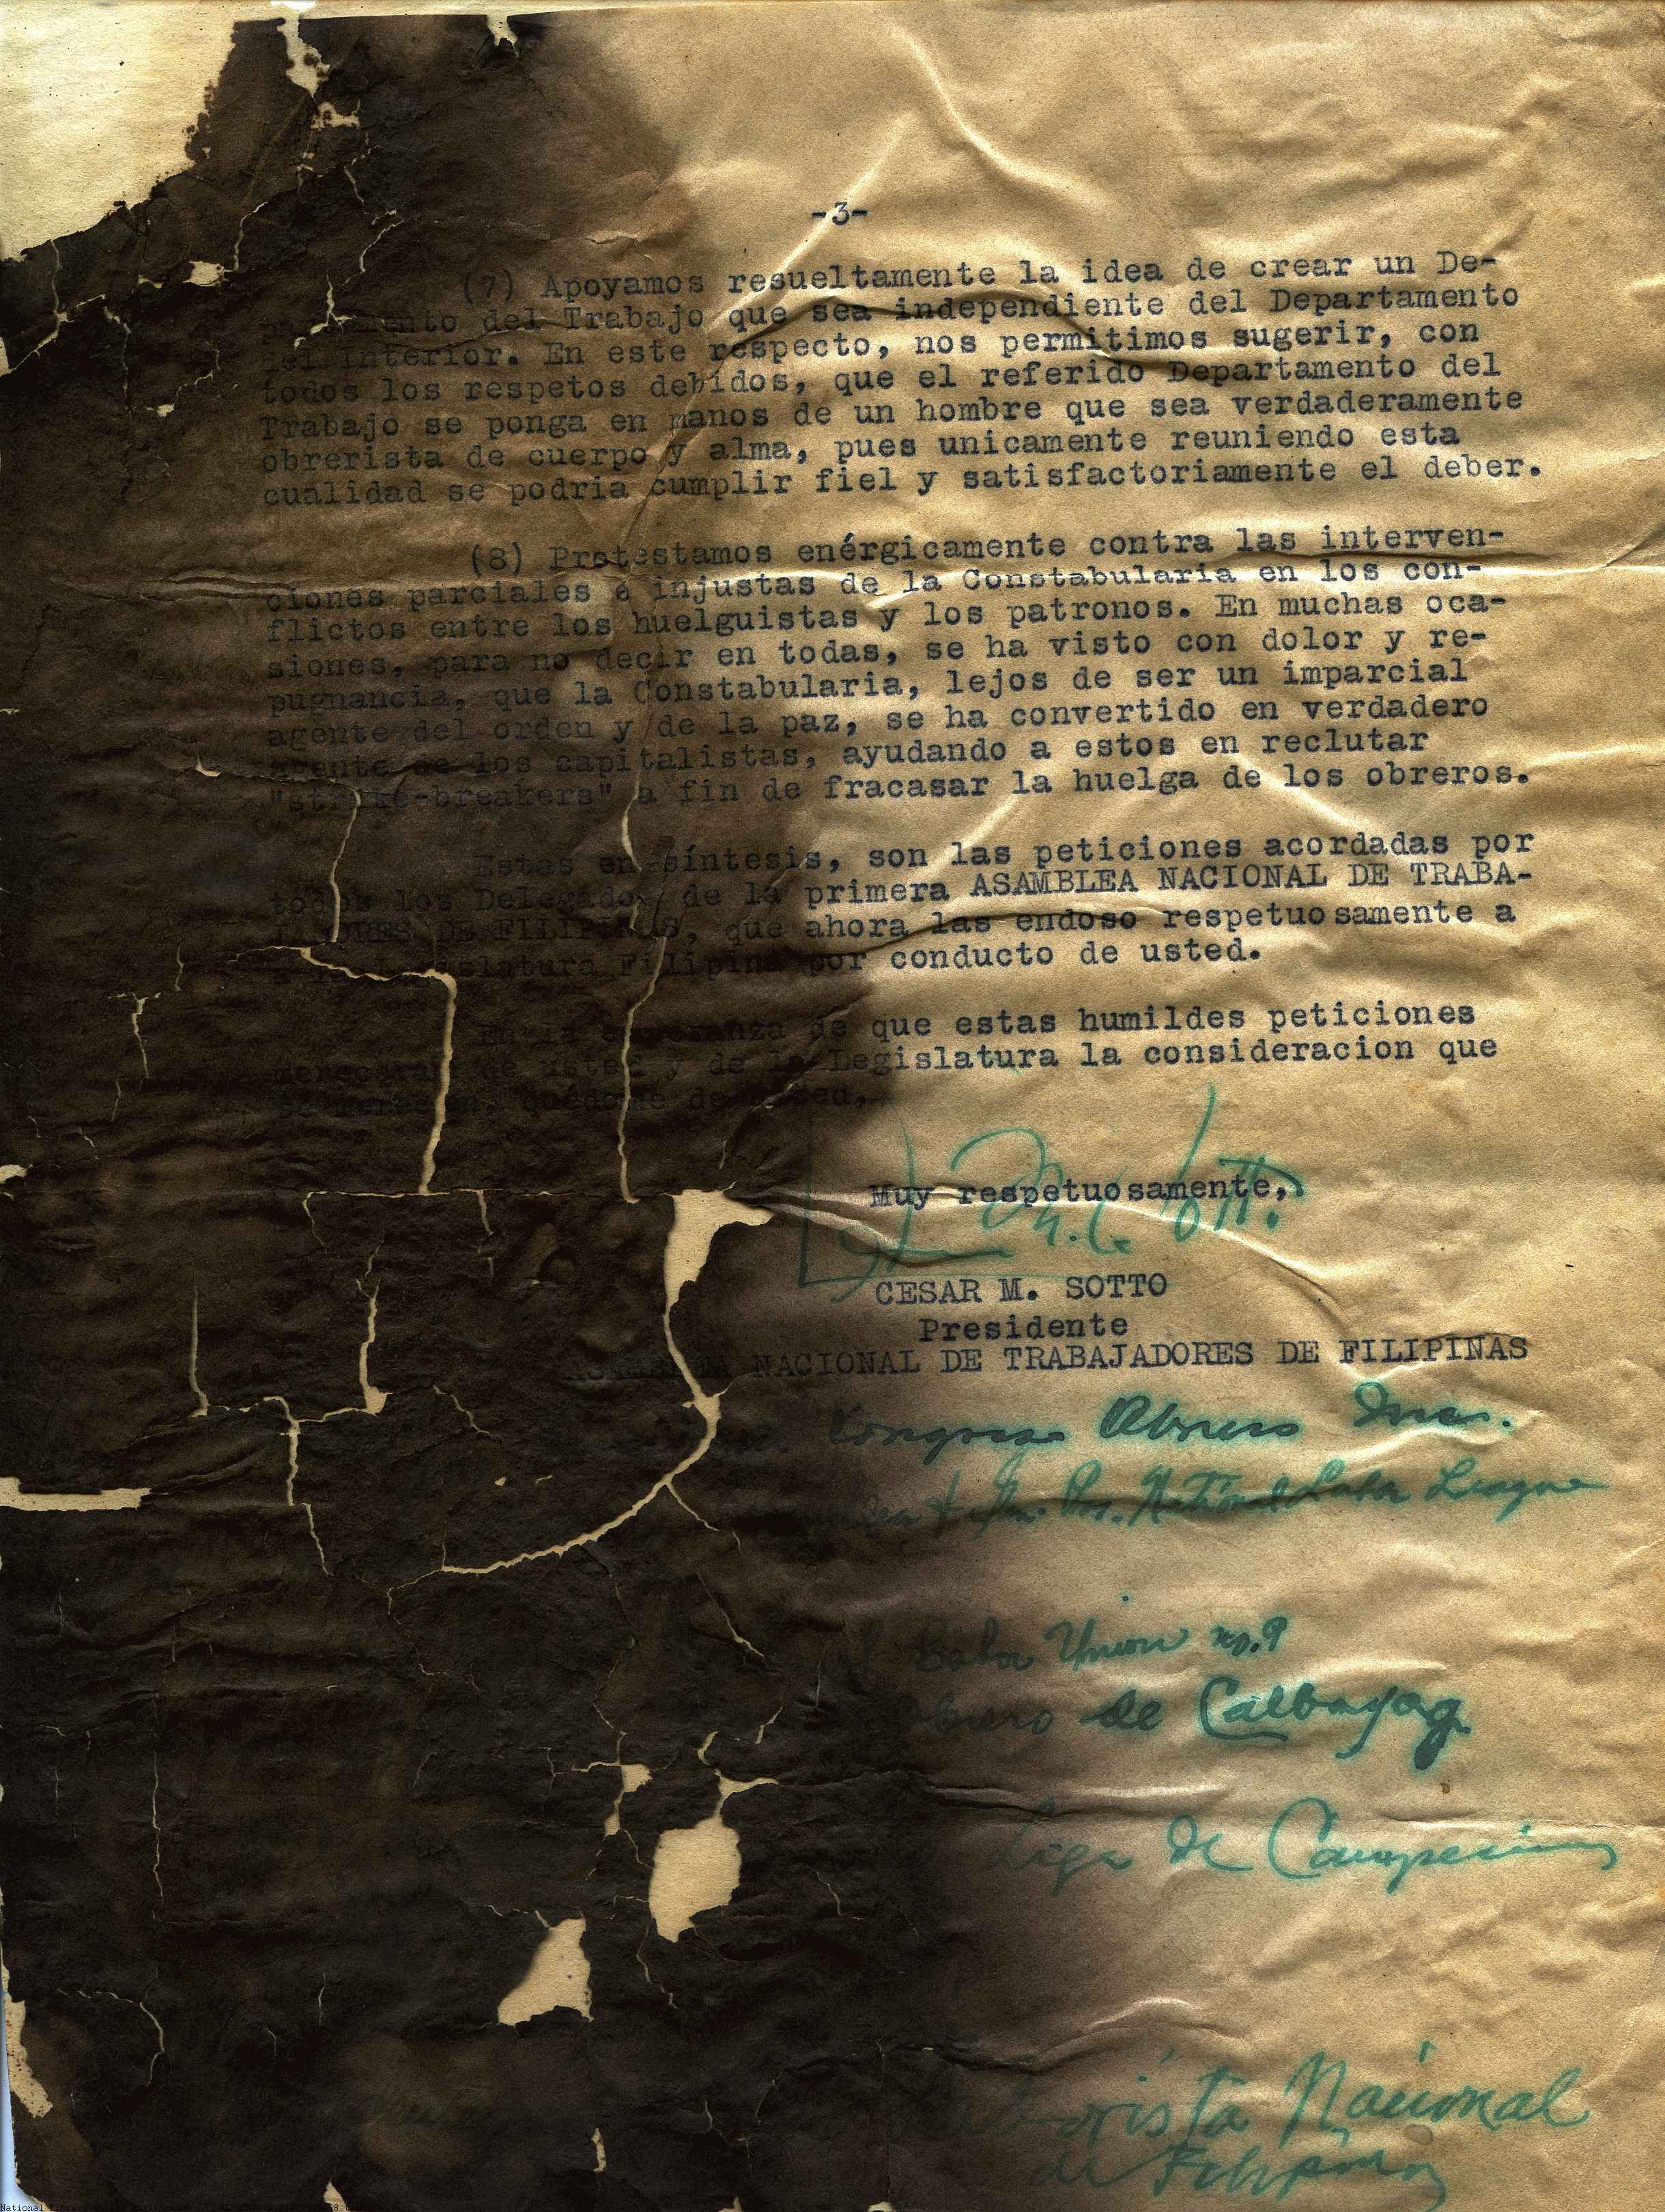 -3-
(7) Apoyamos resueltamente la idea de crear un De-
partamento del Trabajo que sea independiente del Departamento
del Interior. En este respecto, nos permitimos sugerir, con
todos los respetos debidos, que el referido Departamento del
Trabajo se ponga en manos de un hombre que sea verdaderamente
obrerista de cuerpo y alma, pues unicamente reuniendo esta
cualidad se podria cumplir fiel y satisfactoriamente el deber.
(8) Protestamos enérgicamente contra las interven-
ciones parciales é injustas de la Constabularia en los con-
flictos entre los huelguistas y los patronos. En muchas oca-
siones, para no decir en todas, se ha visto con dolor y re-
pugnancia, que la Constabularia, lejos de ser un imparcial
agente del orden y de la paz, se ha convertido en verdadero
agente de los capitalistas, ayudando a estos en reclutar
"strike-breakers" a fin de fracasar la huelga de los obreros.
Estas en síntesis, son las peticiones acordadas por
todos los Delegados de la primera ASAMBLEA NACIONAL DE TRABA-
JADORES DE FILIPINAS, que ahora las endoso respetuosamente a
Legislatura Filipina por conducto de usted.
En la esperanza de que estas humildes peticiones
mereceran de usted y de la Legislatura la consideracion que
se merecen, quédome de usted,
Muy respetuosamente,
CESAR M. SOTTO
Presidente
ASAMBLEA NACIONAL DE TRABAJADORES DE FILIPINAS
Congreso Obrero
National Labor League
Labor Union no. 9
Obrero de Calbayog
Liga de Campesinos
Nacional
de Filipinas
National